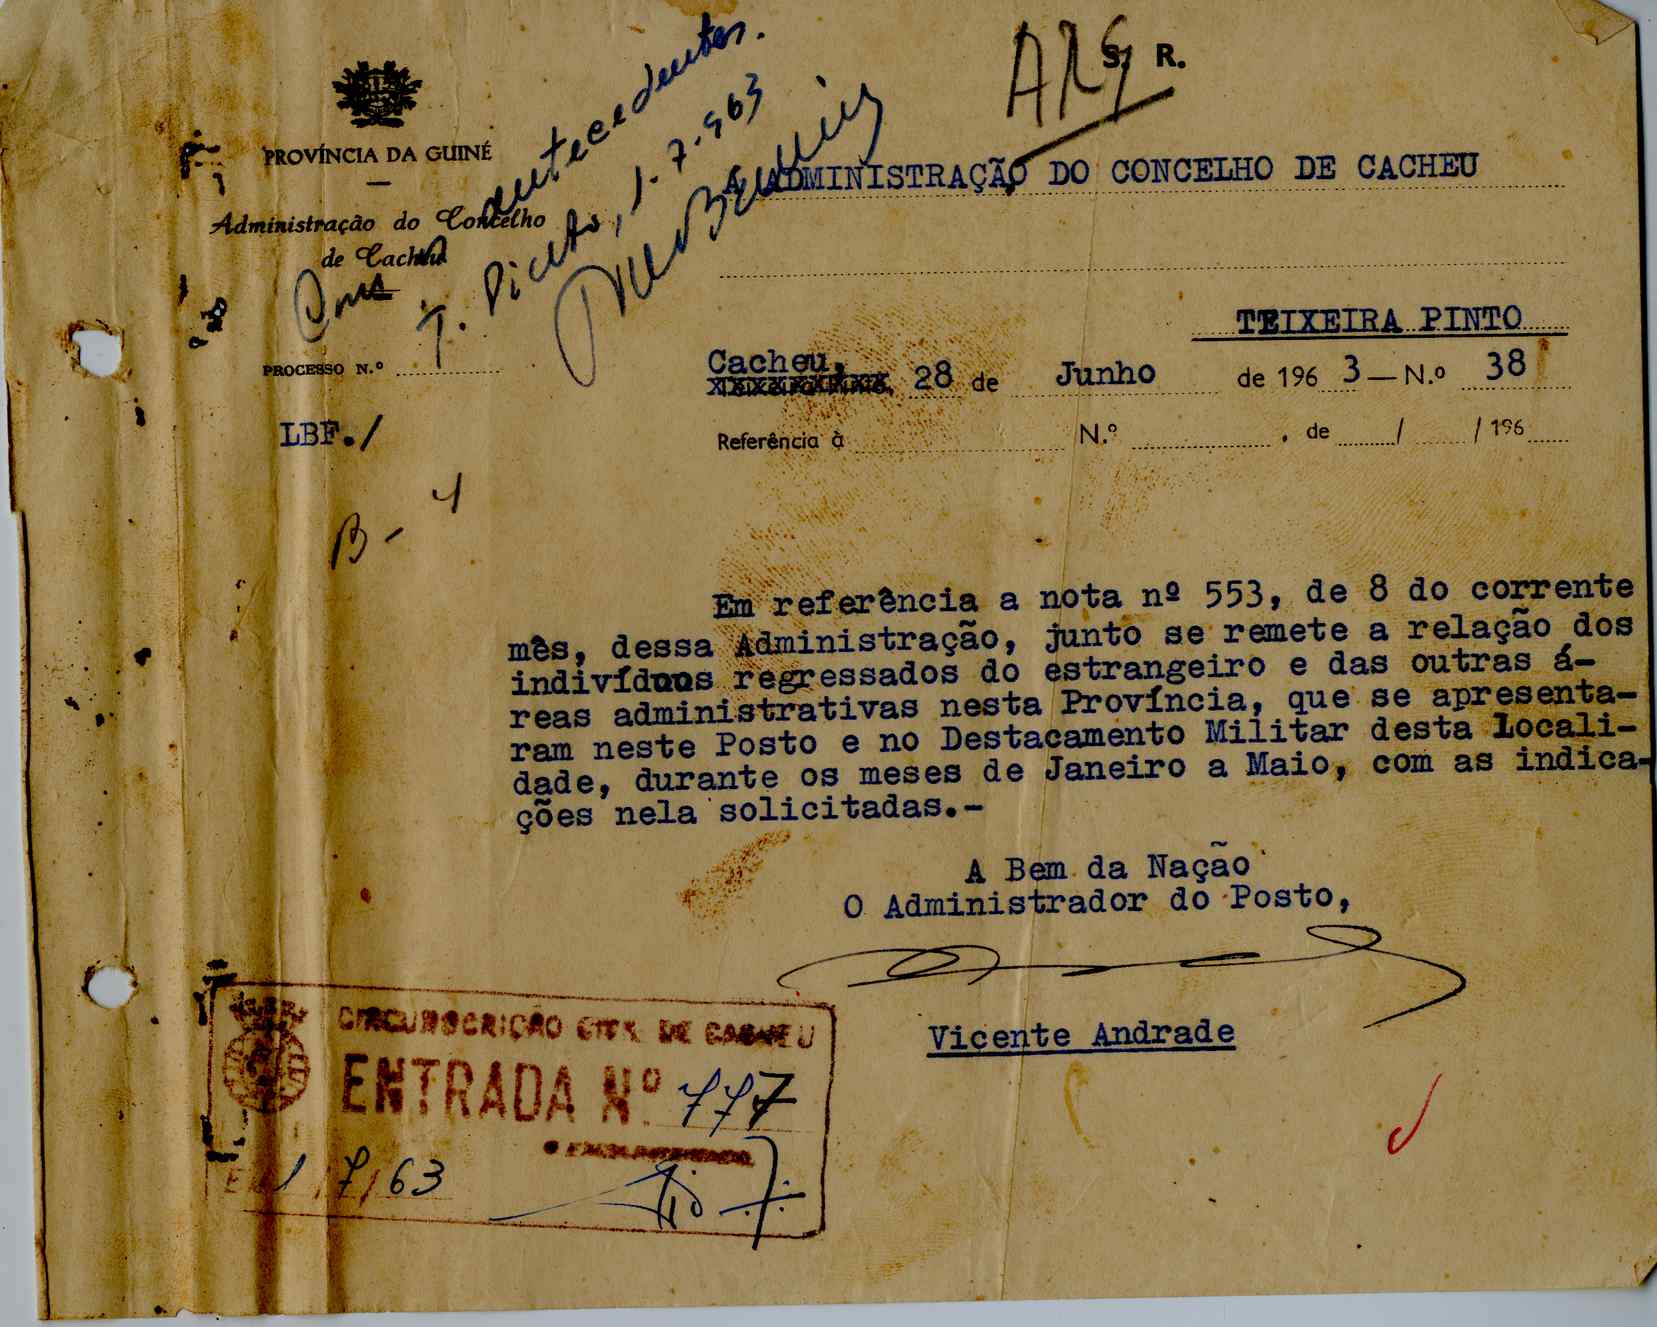 S. R.
ARQ
PROVÍNCIA DA GUINÉ
Administração do Concelho
de Cacheu
Com antecedentes.
T. Pinto, 1.7.963
À ADMINISTRAÇÃO DO CONCELHO DE CACHEU
TEIXEIRA PINTO
PROCESSO N.º
Cacheu, 28 de Junho de 1963 — N.º 38
LBF./
Referência à N.º , de / / 196
B- 4
Em referência a nota nº 553, de 8 do corrente
mês, dessa Administração, junto se remete a relação dos
indivíduos regressados do estrangeiro e das outras á-
reas administrativas nesta Província, que se apresenta-
ram neste Posto e no Destacamento Militar desta Locali-
dade, durante os meses de Janeiro a Maio, com as indica-
ções nela solicitadas.-
A Bem da Nação
O Administrador do Posto,
Vicente Andrade
CIRCUNSCRIÇÃO CIVIL DE CACHEU
ENTRADA Nº 777
1/7/63